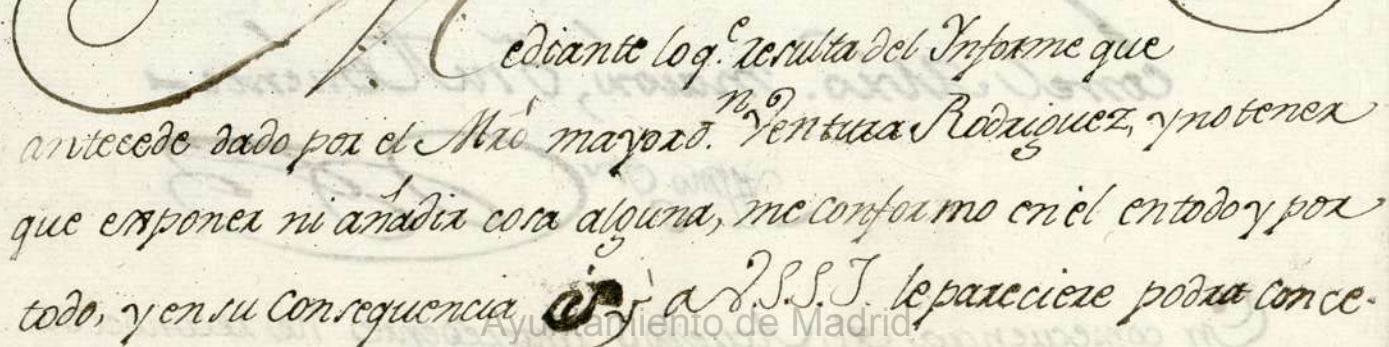 Mediante lo q.e resulta del Informe que
antecede dado por el Mrō mayor d.n Ventura Rodriguez, y no tener
que exponer ni añadir cosa alguna, me conformo en èl en todo y por
todo, y en su Consequencia si à V.S.S.I. le pareciere podrà conce-
Ayuntamiento de Madrid